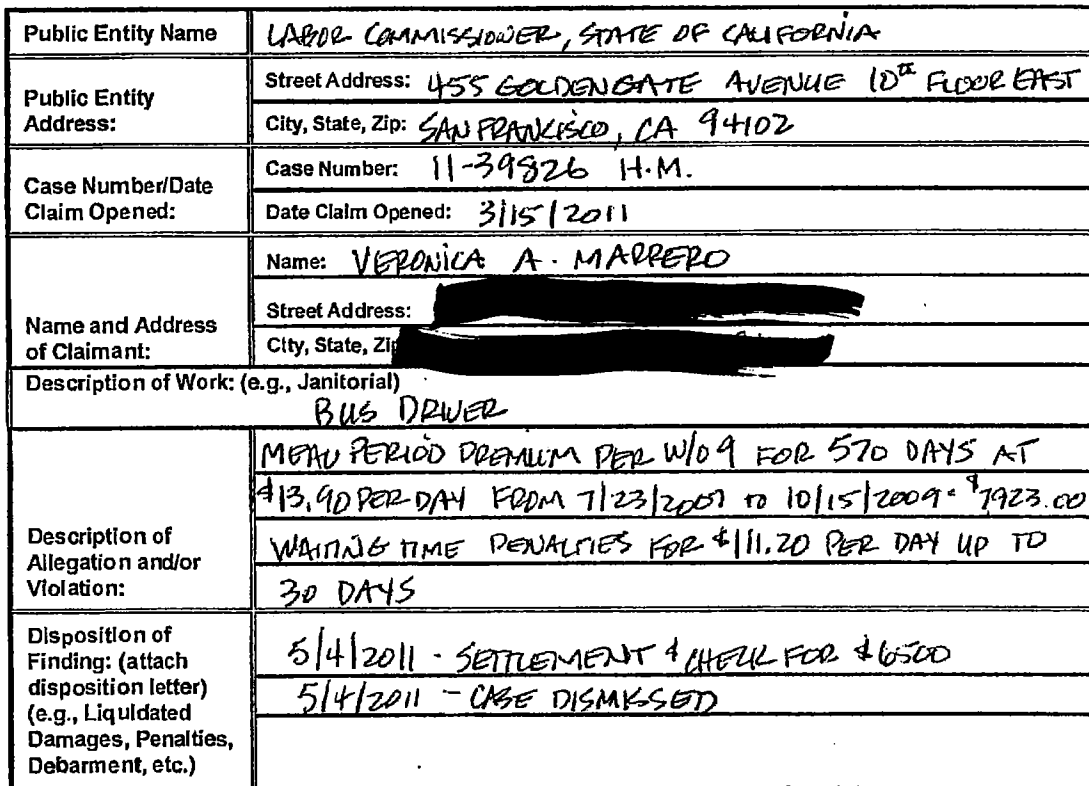 Public Entity Name LABOR COMMISSIONER, STATE OF CALIFORNIA
Public Entity Address:
Street Address: 455 GOLDENGATE AVENUE 10TH FLOOR EAST
City, State, Zip: SAN FRANCISCO, CA 94102
Case Number/Date Claim Opened:
Case Number: 11-39826 H.M.
Date Claim Opened: 3/15/2011
Name and Address of Claimant:
Name: VERONICA A. MARRERO
Street Address:
City, State, Zip
Description of Work: (e.g., Janitorial)
BUS DRIVER
Description of Allegation and/or Violation:
MEAL PERIOD PREMIUM PER W/O 9 FOR 570 DAYS AT
$13.90 PER DAY FROM 7/23/2007 TO 10/15/2009 = $7923.00
WAITING TIME PENALTIES FOR $111.20 PER DAY UP TO
30 DAYS
Disposition of
Finding: (attach
disposition letter)
(e.g., Liquidated
Damages, Penalties,
Debarment, etc.)
5/4/2011 - SETTLEMENT & CHECK FOR $6500
5/4/2011 - CASE DISMISSED